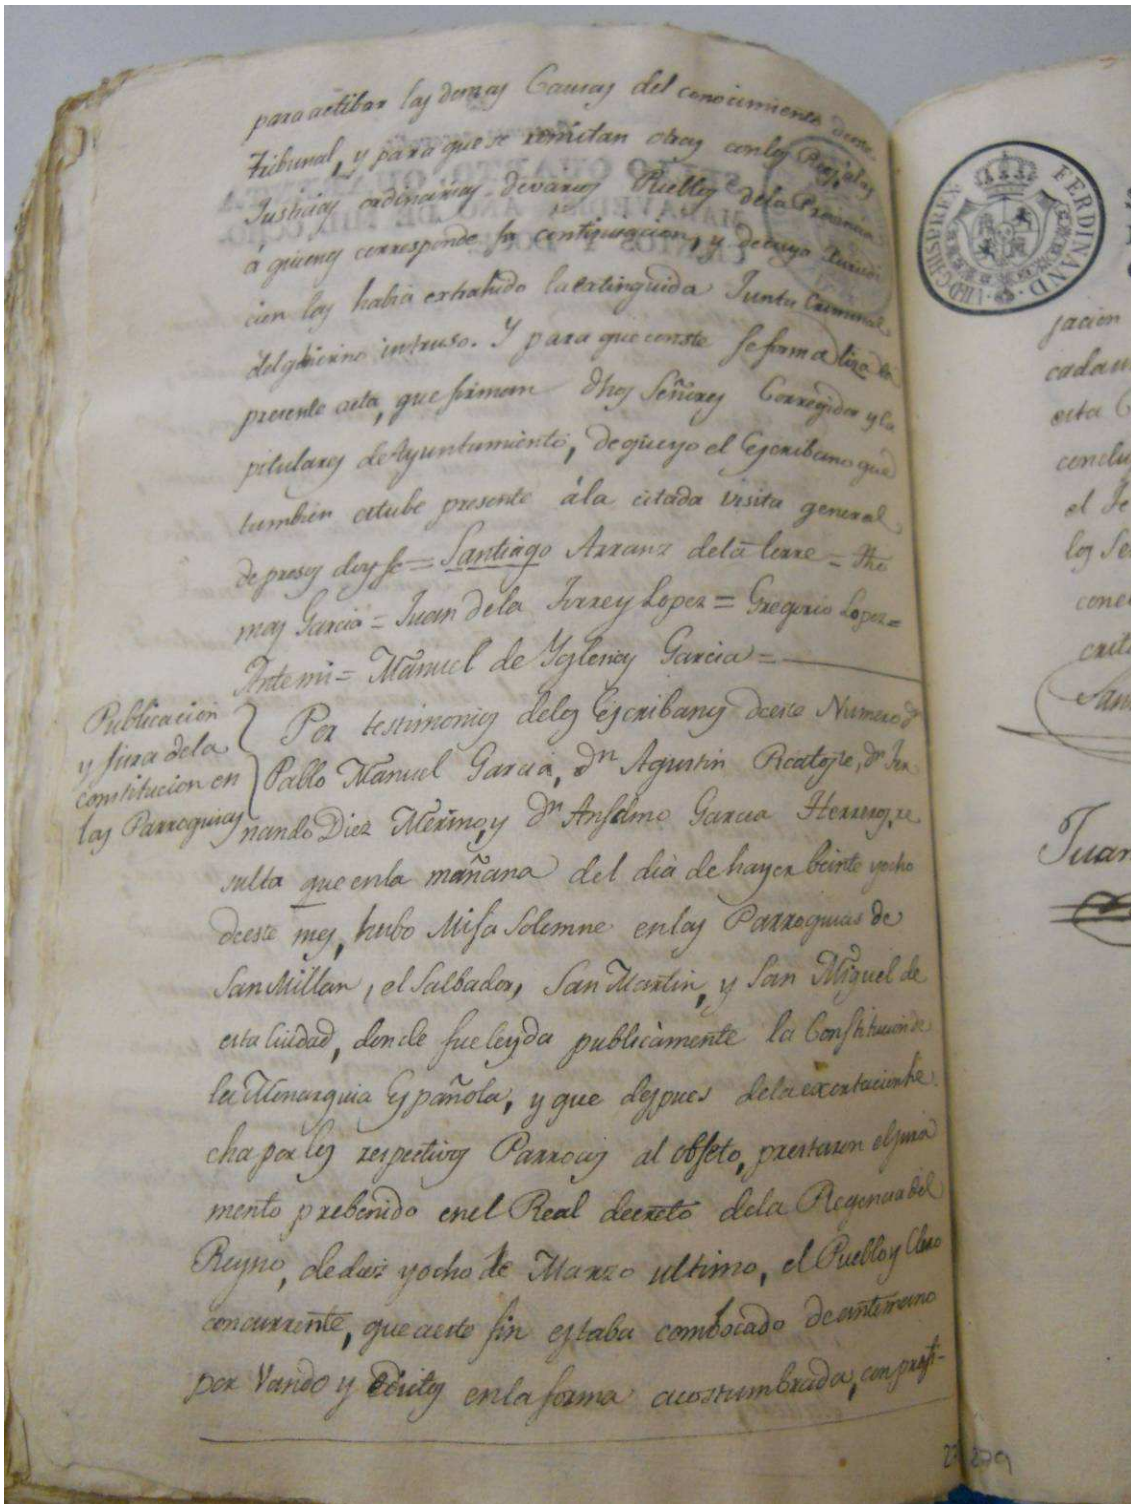 para actibar las demas Causas del conocimiento deeste
tribunal, y para que se remitan otras con los Reos, a las
Justicias ordinarias de varios Pueblos dela Provincia
á quienes corresponde su continuacion, y de cuya Jurisdi
cion las habia extrahido la extinguida Junta Criminal
del govierno intruso. Y para que conste se formaliza la
presente acta, que firman dhos Señores Corregidor y Ca
pitulares de Ayuntamiento, de que yo el Escribano que
tambien estube presente á la citada visita general
de presos doy fe = Santiago Arranz dela Torre = Tho
mas Garcia = Juan dela Torre y Lopez = Gregorio Lopez =
Ante mi = Manuel de Yglesias Garcia =
Publicacion
y jura dela
constitucion en
las Parroquias
Por testimonios delos Escribanos deeste Numero dn
Pablo Manuel Garcia, dn Agustin Picatoste, dn Fer
nando Diez Merino, y dn Anselmo Garcia Herreros, re
sulta que enla mañana del dia de hayer beinte yocho
deeste mes, hubo Misa Solemne enlas Parroquias de
San Millan, el Salbador, San Martin, y San Miguel de
esta Ciudad, donde fue leyda publicamente la Constitucion de
la Monarquia Española, y que despues dela exortacion he
cha por los respectivos Parrocos al obgeto, prestaron el jura
mento prebenido enel Real decreto dela Regencia del
Reyno, de diez yocho de Marzo ultimo, el Pueblo y Clero
concurrente, que aeste fin estaba combocado de antemano
por Vando y enla forma acostumbrada, con
FERDINAND. VII. D. G. HISP. REX
jacion
cada
esta C
conclu
el
los Se
Juan
279